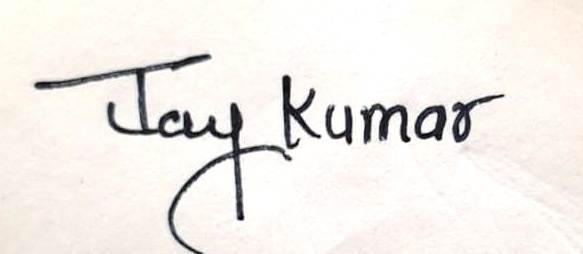 Jay Kumar